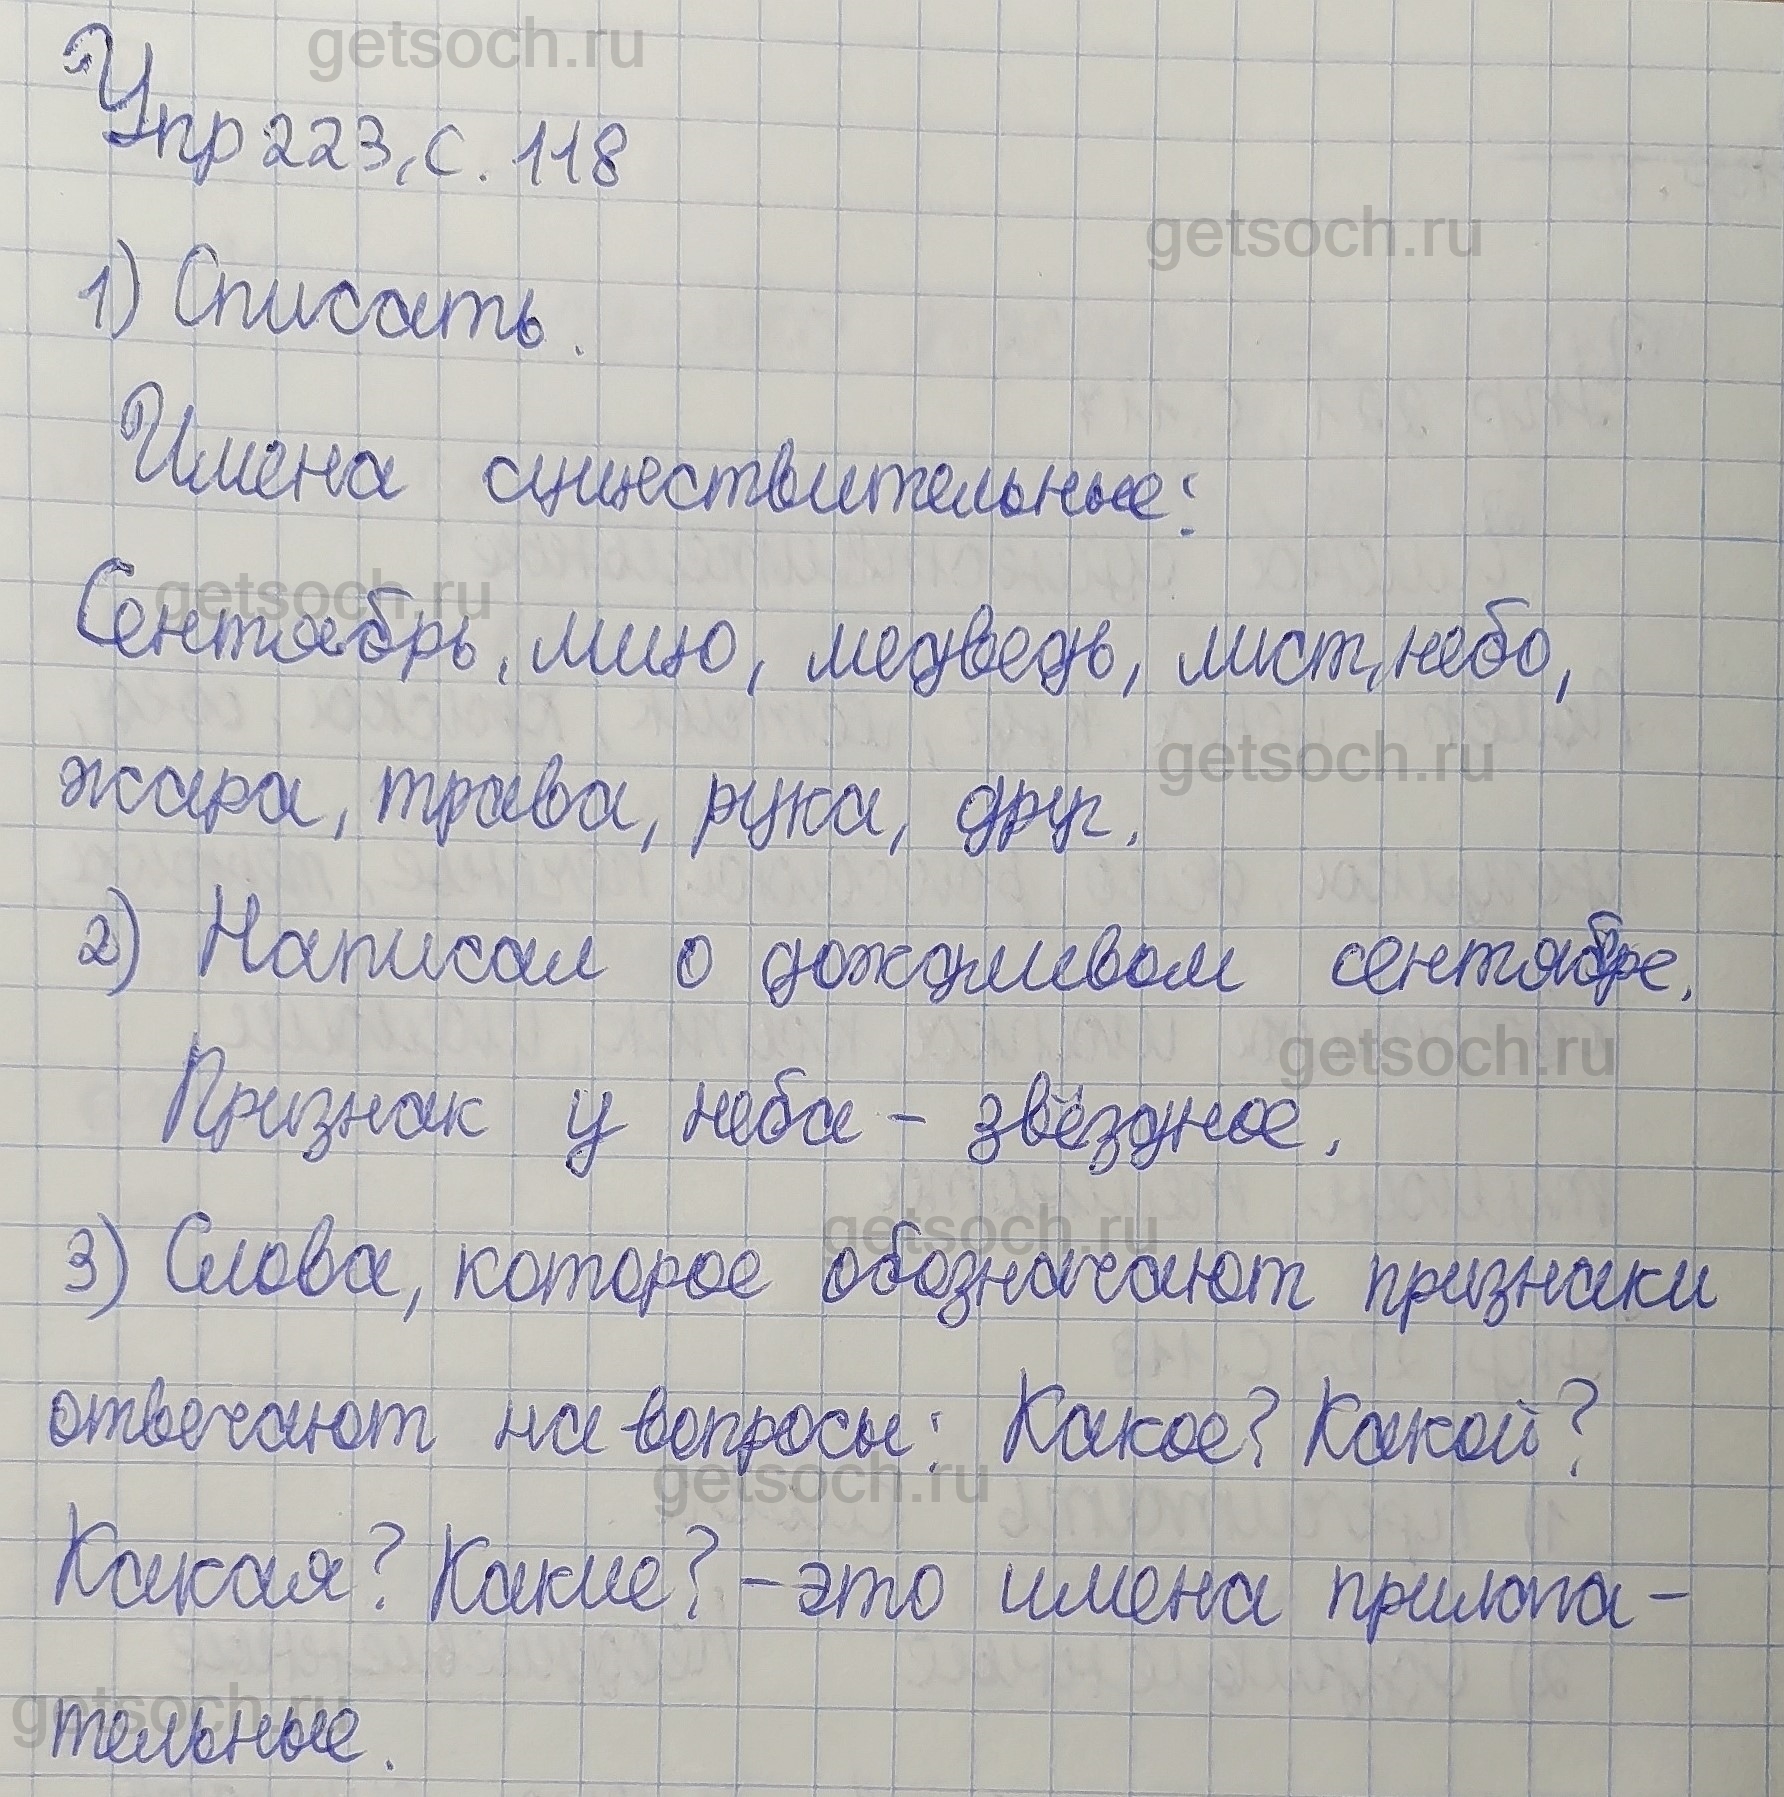 getsoch.ru
Упр 223, с. 118
getsoch.ru
1) Списать.
Имена существительные:
getsoch.ru
Сентябрь, лицо, медведь, лист, небо,
getsoch.ru
жара, трава, рука, друг.
2) Написал о дождливом сентябре.
getsoch.ru
Признак у неба - звёздное.
getsoch.ru
3) Слова, которое обозначают признаки
отвечают на вопросы: Какое? Какой?
getsoch.ru
Какая? Какие? - это имена прилага-
getsoch.ru
тельные.